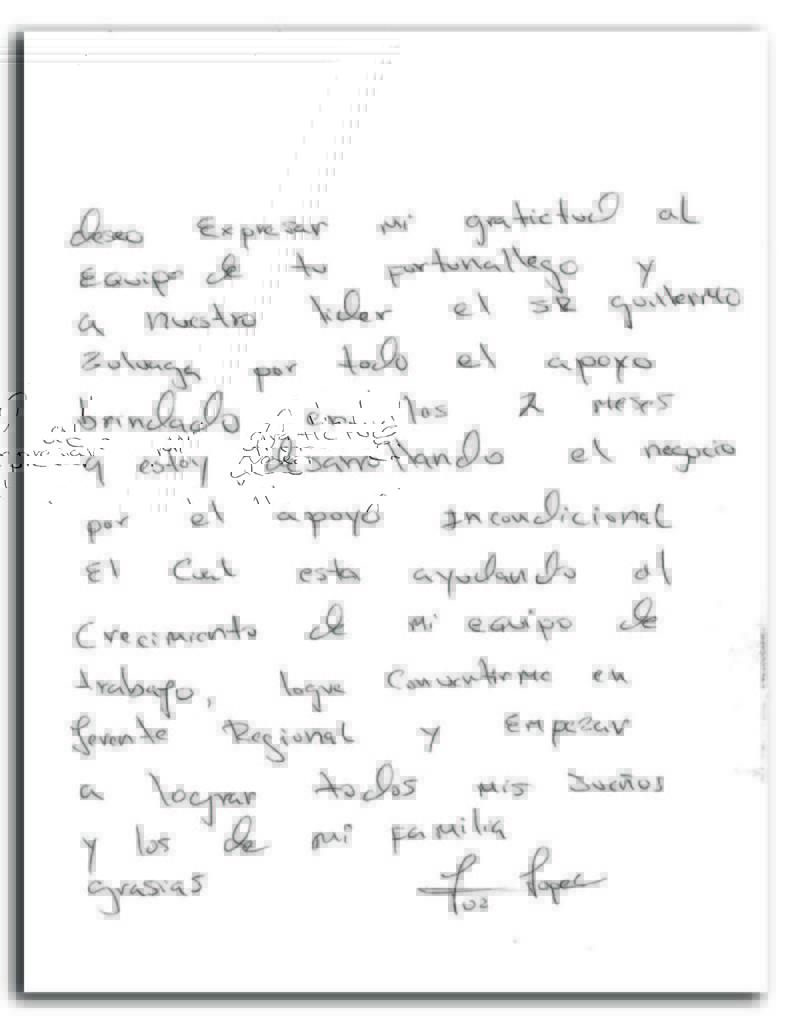 deseo Expresar mi gratictud al
Equipo de tu fortunallego y
a nuestro lider el SR guillermo
Zuluaga por todo el apoyo
brindado en los 2 meses
q estoy desarrollando el negocio
por el apoyo Incondicional
El Cual esta ayudando al
Crecimiento de mi equipo de
trabajo, logre Convertirme en
Gerente Regional y Empezar
a lograr todos mis Sueños
y los de mi familia
grasias Luz Lopez